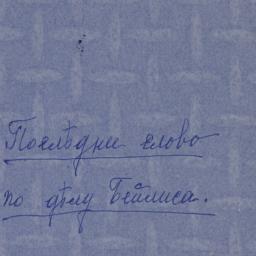 Послѣдни слово
по дѣлу Бейлиса.